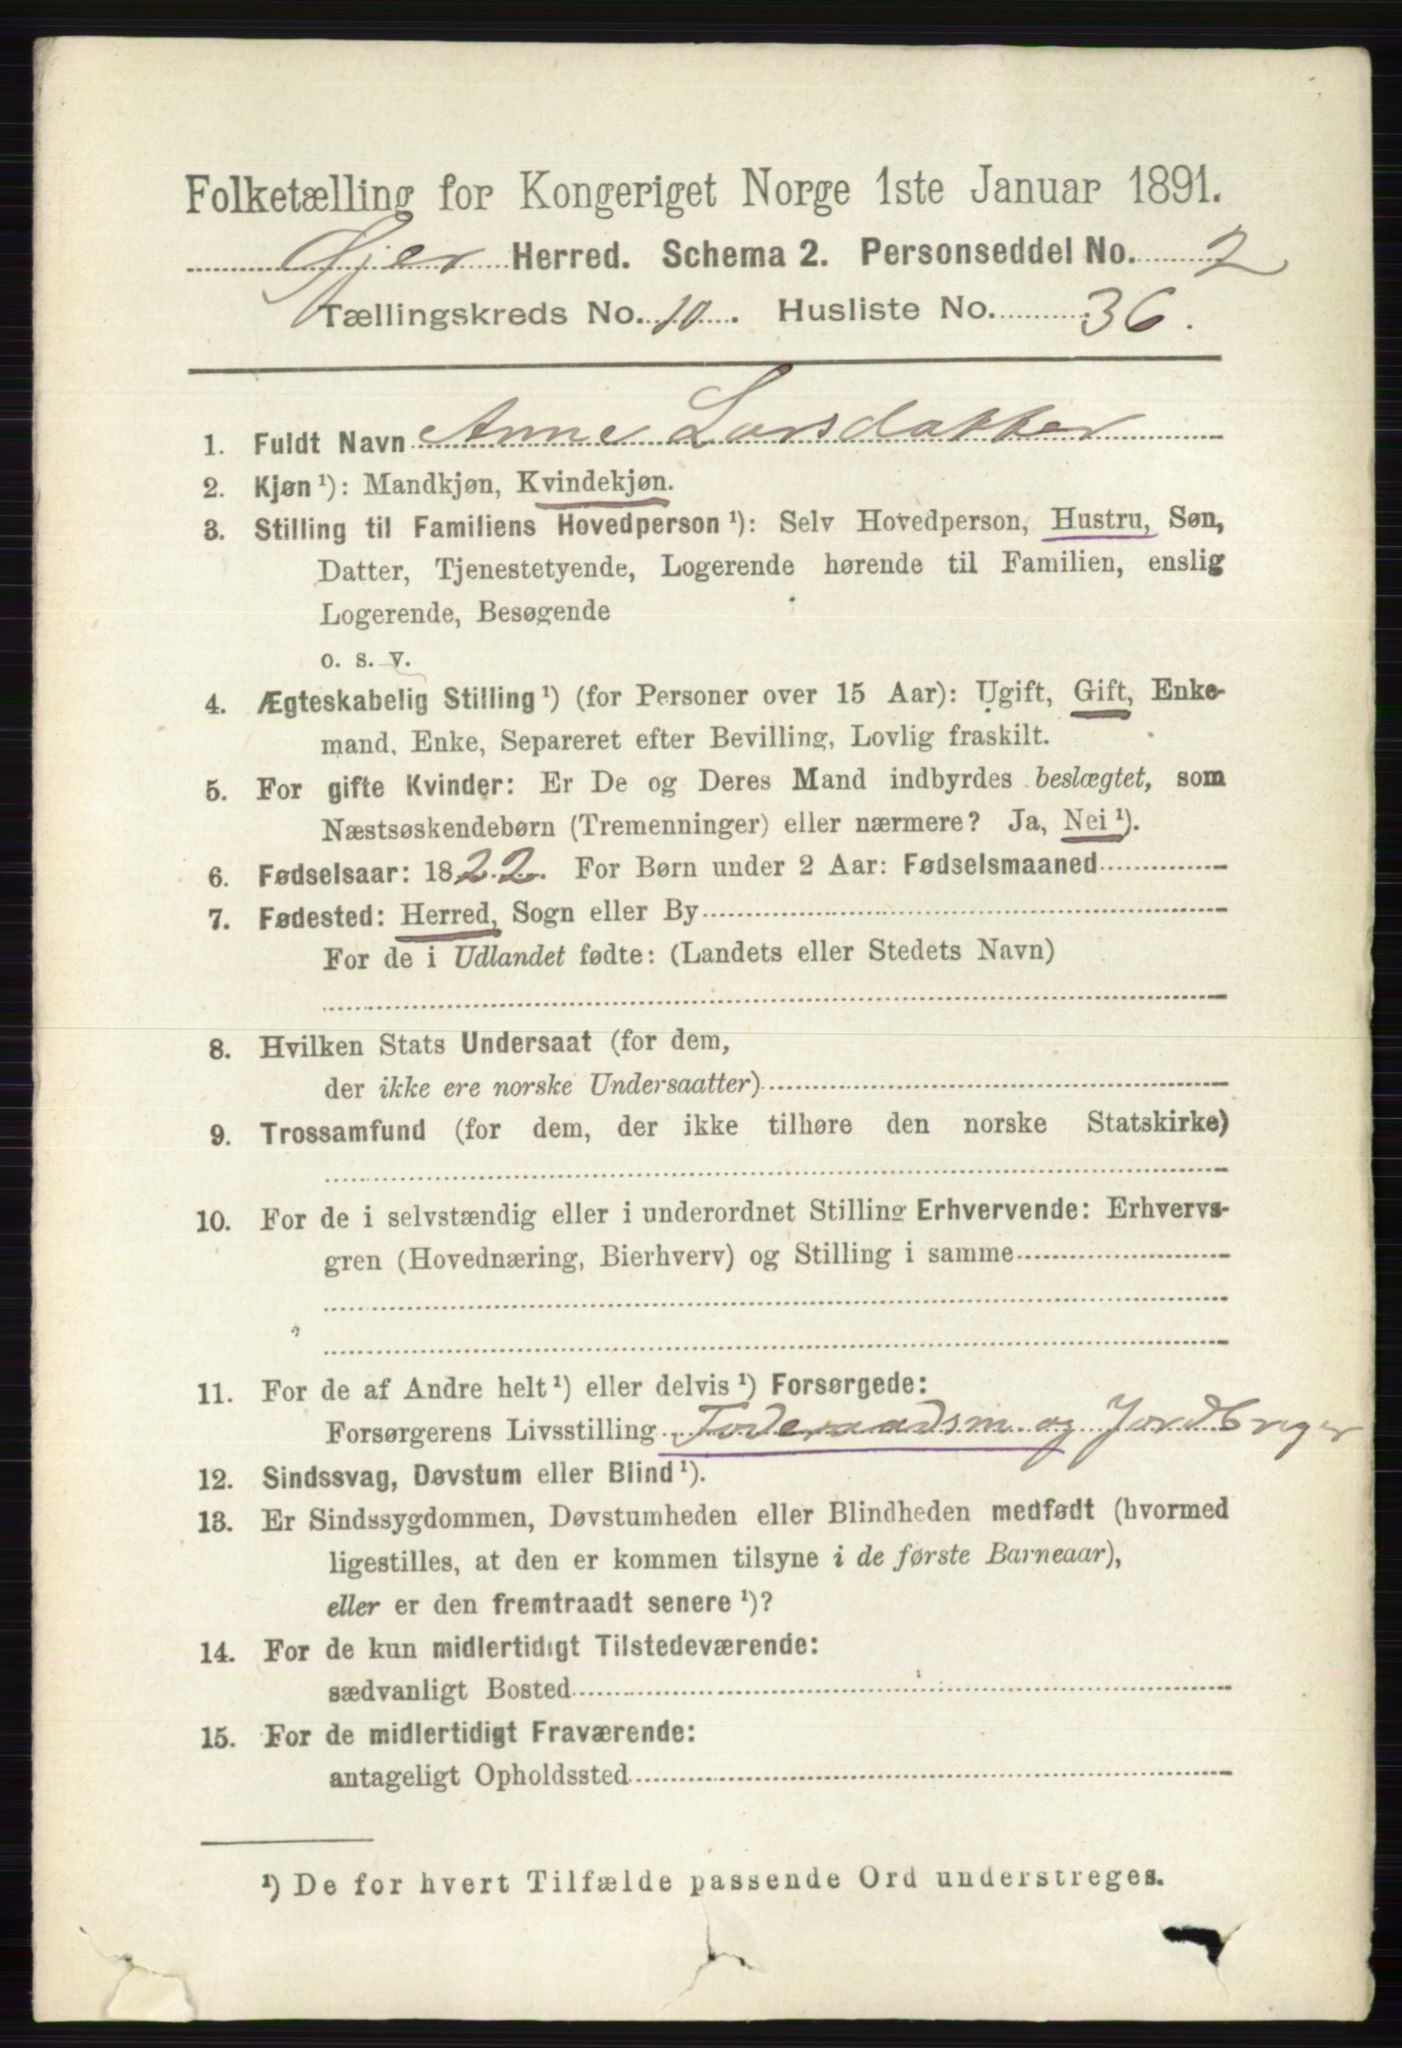 Folketælling for Kongeriget Norge 1ste Januar 1891.
Øjer Herred. Schema 2. Personseddel No. 2
Tællingskreds No. 10. Husliste No. 36.
1. Fuldt Navn Anne Larsdatter
2. Kjøn ¹): Mandkjøn, Kvindekjøn.
3. Stilling til Familiens Hovedperson ¹): Selv Hovedperson, Hustru, Søn,
Datter, Tjenestetyende, Logerende hørende til Familien, enslig
Logerende, Besøgende
o. s. v.
4. Ægteskabelig Stilling ¹) (for Personer over 15 Aar): Ugift, Gift, Enke-
mand, Enke, Separeret efter Bevilling, Lovlig fraskilt.
5. For gifte Kvinder: Er De og Deres Mand indbyrdes beslægtet, som
Næstsøskendebørn (Tremenninger) eller nærmere? Ja, Nei ¹).
6. Fødselsaar: 1822. For Børn under 2 Aar: Fødselsmaaned
7. Fødested: Herred, Sogn eller By
For de i Udlandet fødte: (Landets eller Stedets Navn)
8. Hvilken Stats Undersaat (for dem,
der ikke ere norske Undersaatter)
9. Trossamfund (for dem, der ikke tilhøre den norske Statskirke)
10. For de i selvstændig eller i underordnet Stilling Erhvervende: Erhvervs-
gren (Hovednæring, Bierhverv) og Stilling i samme
11. For de af Andre helt ¹) eller delvis ¹) Forsørgede:
Forsørgerens Livsstilling Foderaadsm og Jordbruger
12. Sindssvag, Døvstum eller Blind ¹).
13. Er Sindssygdommen, Døvstumheden eller Blindheden medfødt (hvormed
ligestilles, at den er kommen tilsyne i de første Barneaar),
eller er den fremtraadt senere ¹)?
14. For de kun midlertidigt Tilstedeværende:
sædvanligt Bosted
15. For de midlertidigt Fraværende:
antageligt Opholdssted
¹) De for hvert Tilfælde passende Ord understreges.